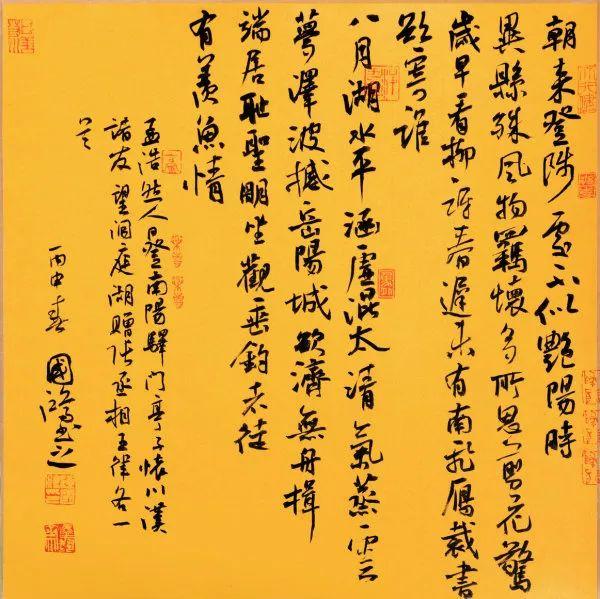 朝来登陟處不似艷陽時
異縣殊風物羈懷多所思剪花驚
歲早看柳訝春遲未有南飛鴈裁書
欲寄誰
八月湖水平涵虛混太清氣蒸雲
夢澤波撼岳陽城欲濟無舟楫
端居耻聖明坐觀垂釣者徒
有羨魚情
孟浩然人日登南陽驛門亭子懷川漢
諸友望洞庭湖贈張丞相五律各一
首
丙申春 國鴻書之